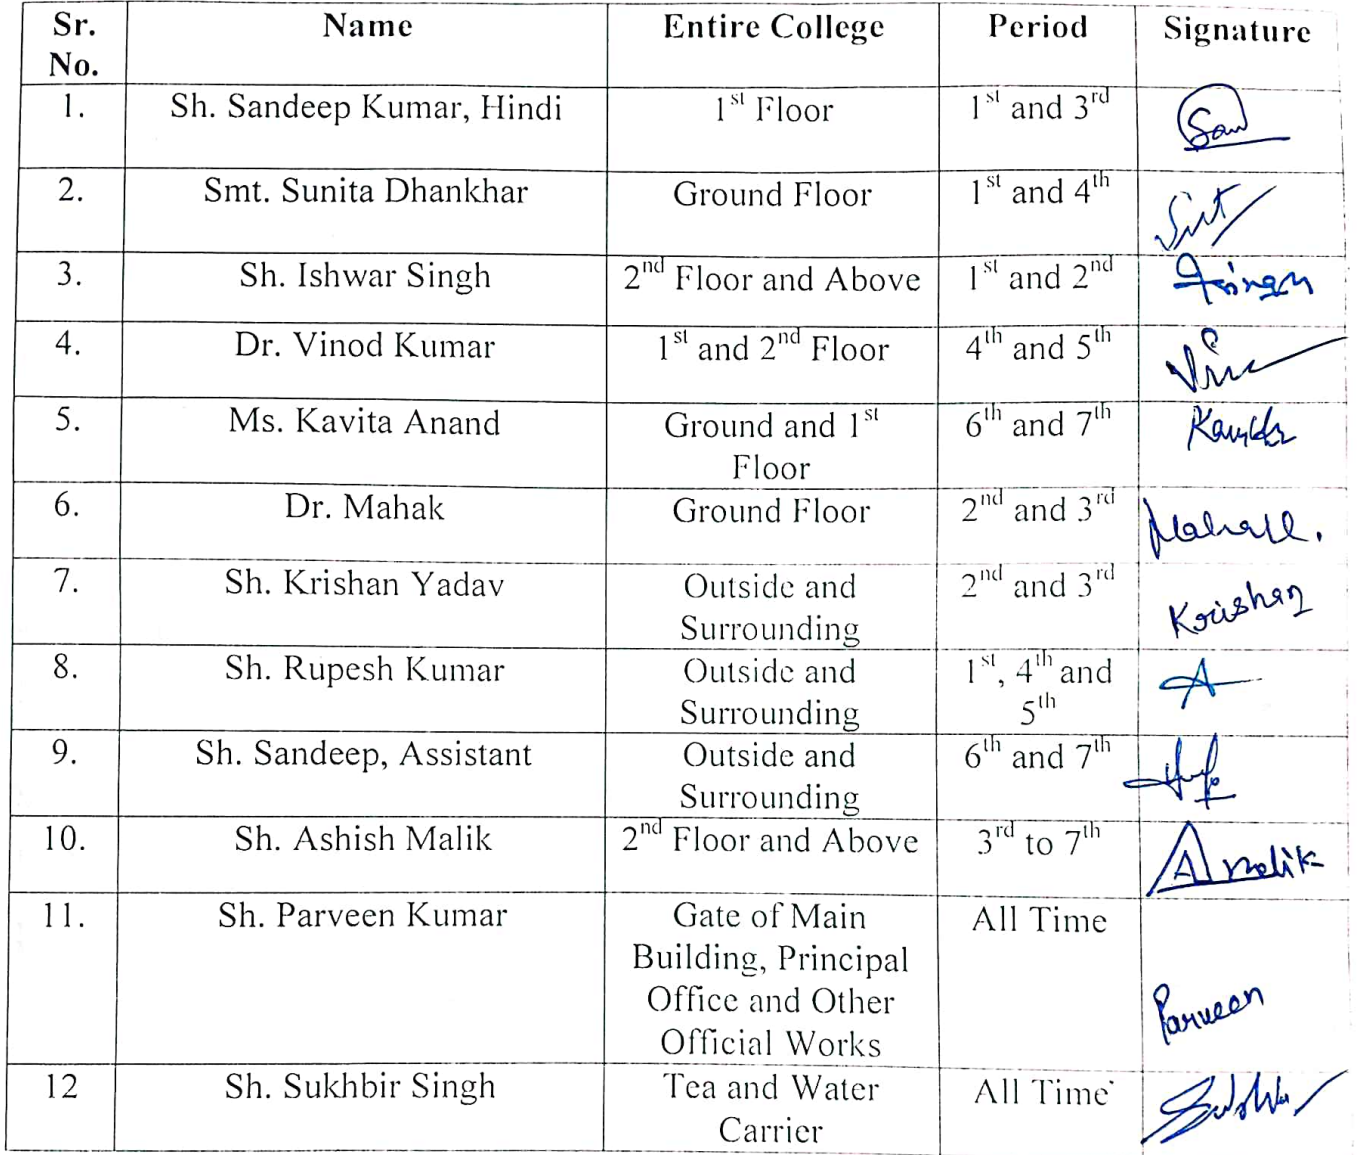 Sr. No. Name Entire College Period Signature
1. Sh. Sandeep Kumar, Hindi 1st Floor 1st and 3rd San
2. Smt. Sunita Dhankhar Ground Floor 1st and 4th
3. Sh. Ishwar Singh 2nd Floor and Above 1st and 2nd
4. Dr. Vinod Kumar 1st and 2nd Floor 4th and 5th
5. Ms. Kavita Anand Ground and 1st 6th and 7th Kavita
Floor
6. Dr. Mahak Ground Floor 2nd and 3rd Mahak.
7. Sh. Krishan Yadav Outside and 2nd and 3rd Krishan
Surrounding
8. Sh. Rupesh Kumar Outside and 1st, 4th and
Surrounding 5th
9. Sh. Sandeep, Assistant Outside and 6th and 7th
Surrounding
10. Sh. Ashish Malik 2nd Floor and Above 3rd to 7th A malik
11. Sh. Parveen Kumar Gate of Main All Time
Building, Principal
Office and Other Parveen
Official Works
12 Sh. Sukhbir Singh Tea and Water All Time
Carrier